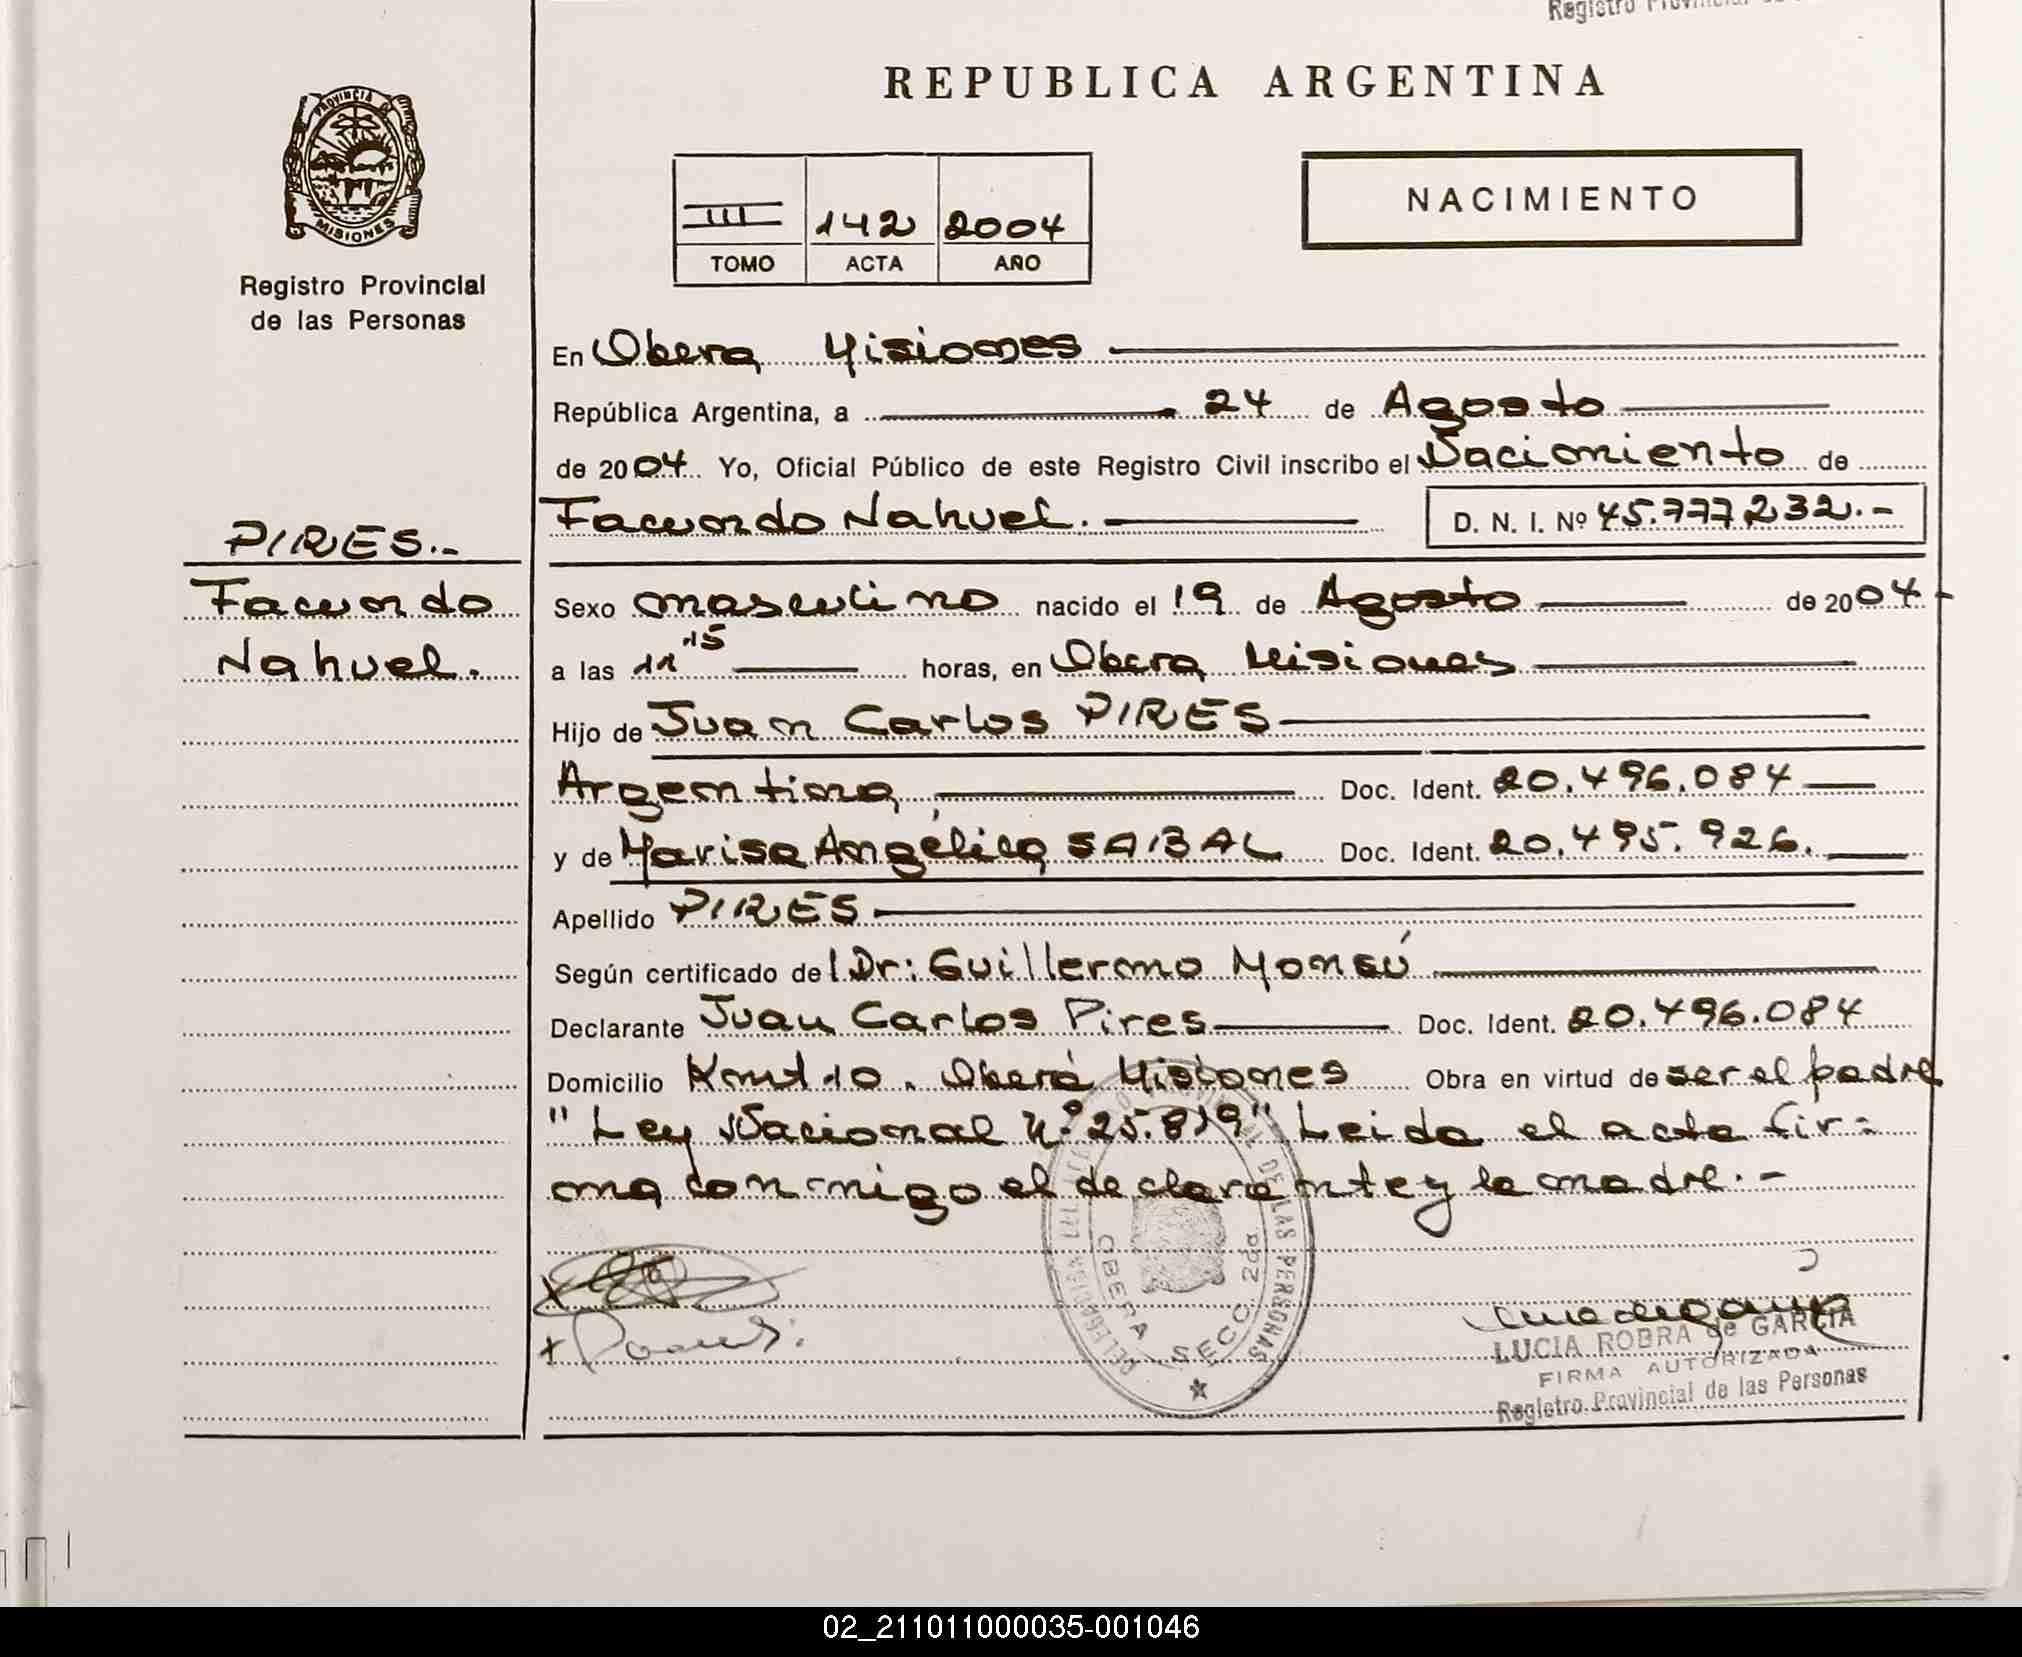 REPUBLICA ARGENTINA
PROVINCIA DE
MISIONES
Registro Provincial
de las Personas
III 142 2004
TOMO ACTA AÑO
NACIMIENTO
En Obera Misiones
República Argentina, a 24 de Agosto
de 2004 Yo, Oficial Público de este Registro Civil inscribo el Nacimiento de
Facundo Nahuel. D. N. I. Nº 45.777.232.-
PIRES.-
Facundo
Nahuel.
Sexo masculino nacido el 19 de Agosto de 2004-
a las 11 15 horas, en Obera Misiones
Hijo de Juan Carlos PIRES
Argentina, Doc. Ident. 20.496.084
y de Marisa Angélica SAIBAL Doc. Ident. 20.495.926.
Apellido PIRES
Según certificado del Dr: Guillermo Monsú
Declarante Juan Carlos Pires Doc. Ident. 20.496.084
Domicilio Obera Misiones Obra en virtud de ser el padre
"Ley Nacional Nº 25.819" Leida el acta fir=
ma conmigo el declarante y la madre.-
DELEGACION REGISTRO PROVINCIAL DE LAS PERSONAS
OBERA SECC. 2da
LUCIA ROBRA de GARCIA
FIRMA AUTORIZADA
Registro Provincial de las Personas
02_211011000035-001046